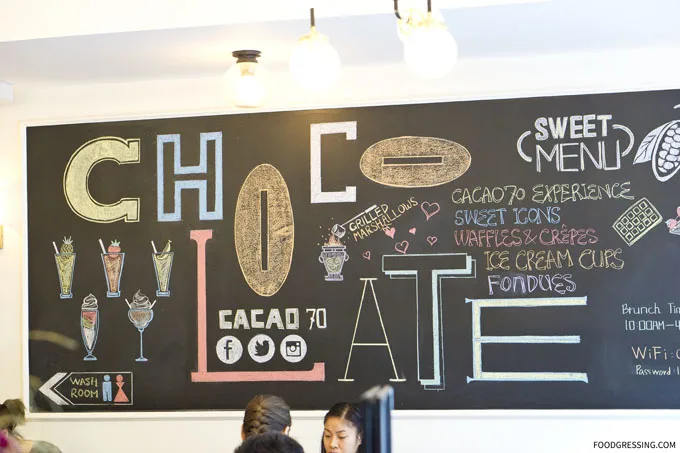 CHOCO
LATE
SWEET
MENU
CACAO 70 EXPERIENCE
SWEET ICONS
WAFFLES & CRÊPES
ICE CREAM CUPS
FONDUES
GRILLED
MARSHALLOWS
CACAO 70
f
WASH
ROOM
Brunch
10:00AM-4
WiFi:
Password:
FOODGRESSING.COM